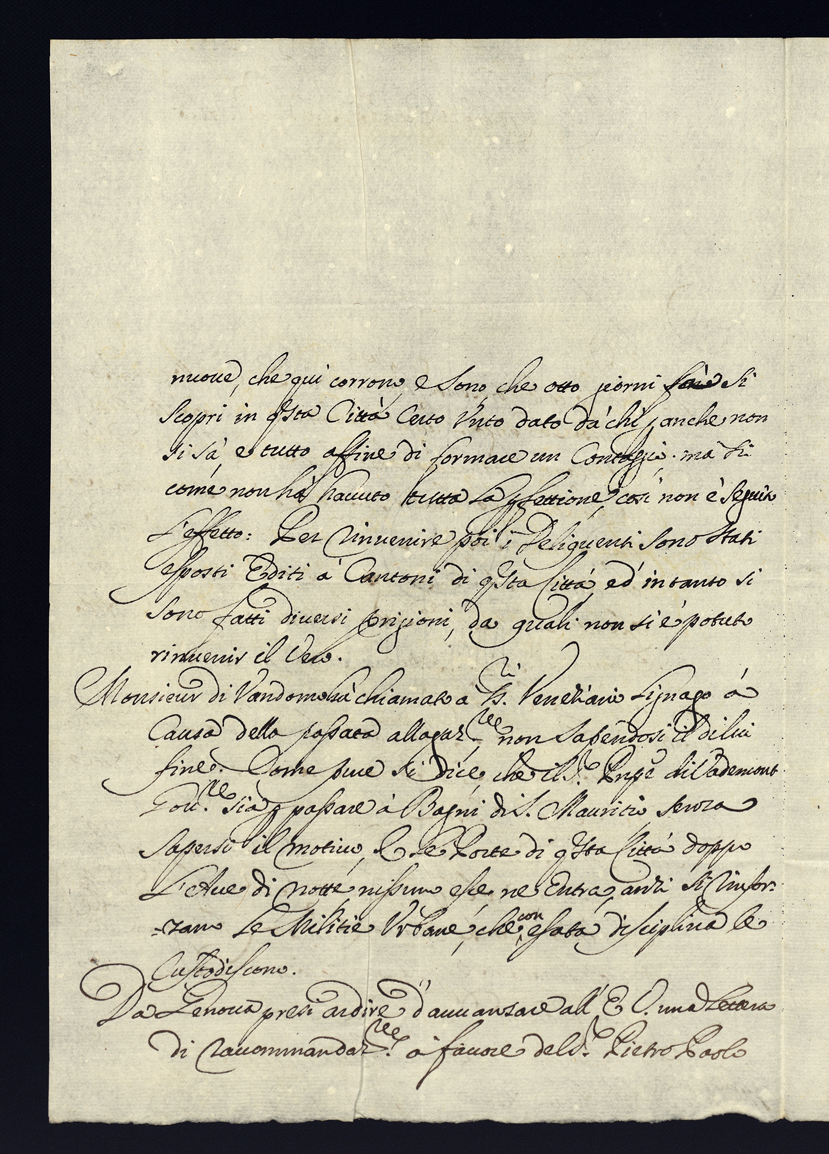 nuove, che qui corrono, e sono, che otto giorni sà si
scoprì in q.sta Città certo Unto dato da chi, anche non
si sà e tutto affine di formare un Contagio. ma si
come non hà havuto tutta la perfettione, così non è seguito
l'effetto: Per rinvenire poi i Deliquenti sono stati
esposti Editi a' Cantoni di q.sta Città, ed' intanto si
sono fatti diversi prigioni, da quali non si è potuto
rinvenir il Vero.
Monsieur di Vandomo hà chiamato a ss.ri Veneziani Lignago à
Causa della passata allagaz.ne non sapendosi il di lui
fine. Come pure si dice che il S.r Prnpe di Vademont
Gov.re sia p passare à Bagni di S. Mauritio senza
sapersi il motivo, E le Porte di q.sta Città doppo
l'Ave di notte nissuno esce ne Entra, anzi si rinfor-
-zano le Militie Urbane, che con esata disciplina le
Custodiscono.
Da Genova presi ardire d'avvanzare all' E. V. una Lettera
di raccommandaz.ne a favore del S.r Pietro Paolo